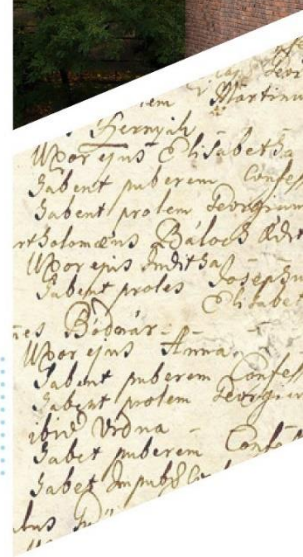 Martinu
Hernyak
Uxor ejus Elisabetha
Habent puberem Confes
Habent prolem Georgium
rtholomæus Baloch
Uxor ejus Juditha
Habent proles Josephu
Elisabe
Bodnár
Uxor ejus Anna
Habent puberem Confes
Habent prolem Georgiu
Vrdna
Habet puberem Confe
Habet